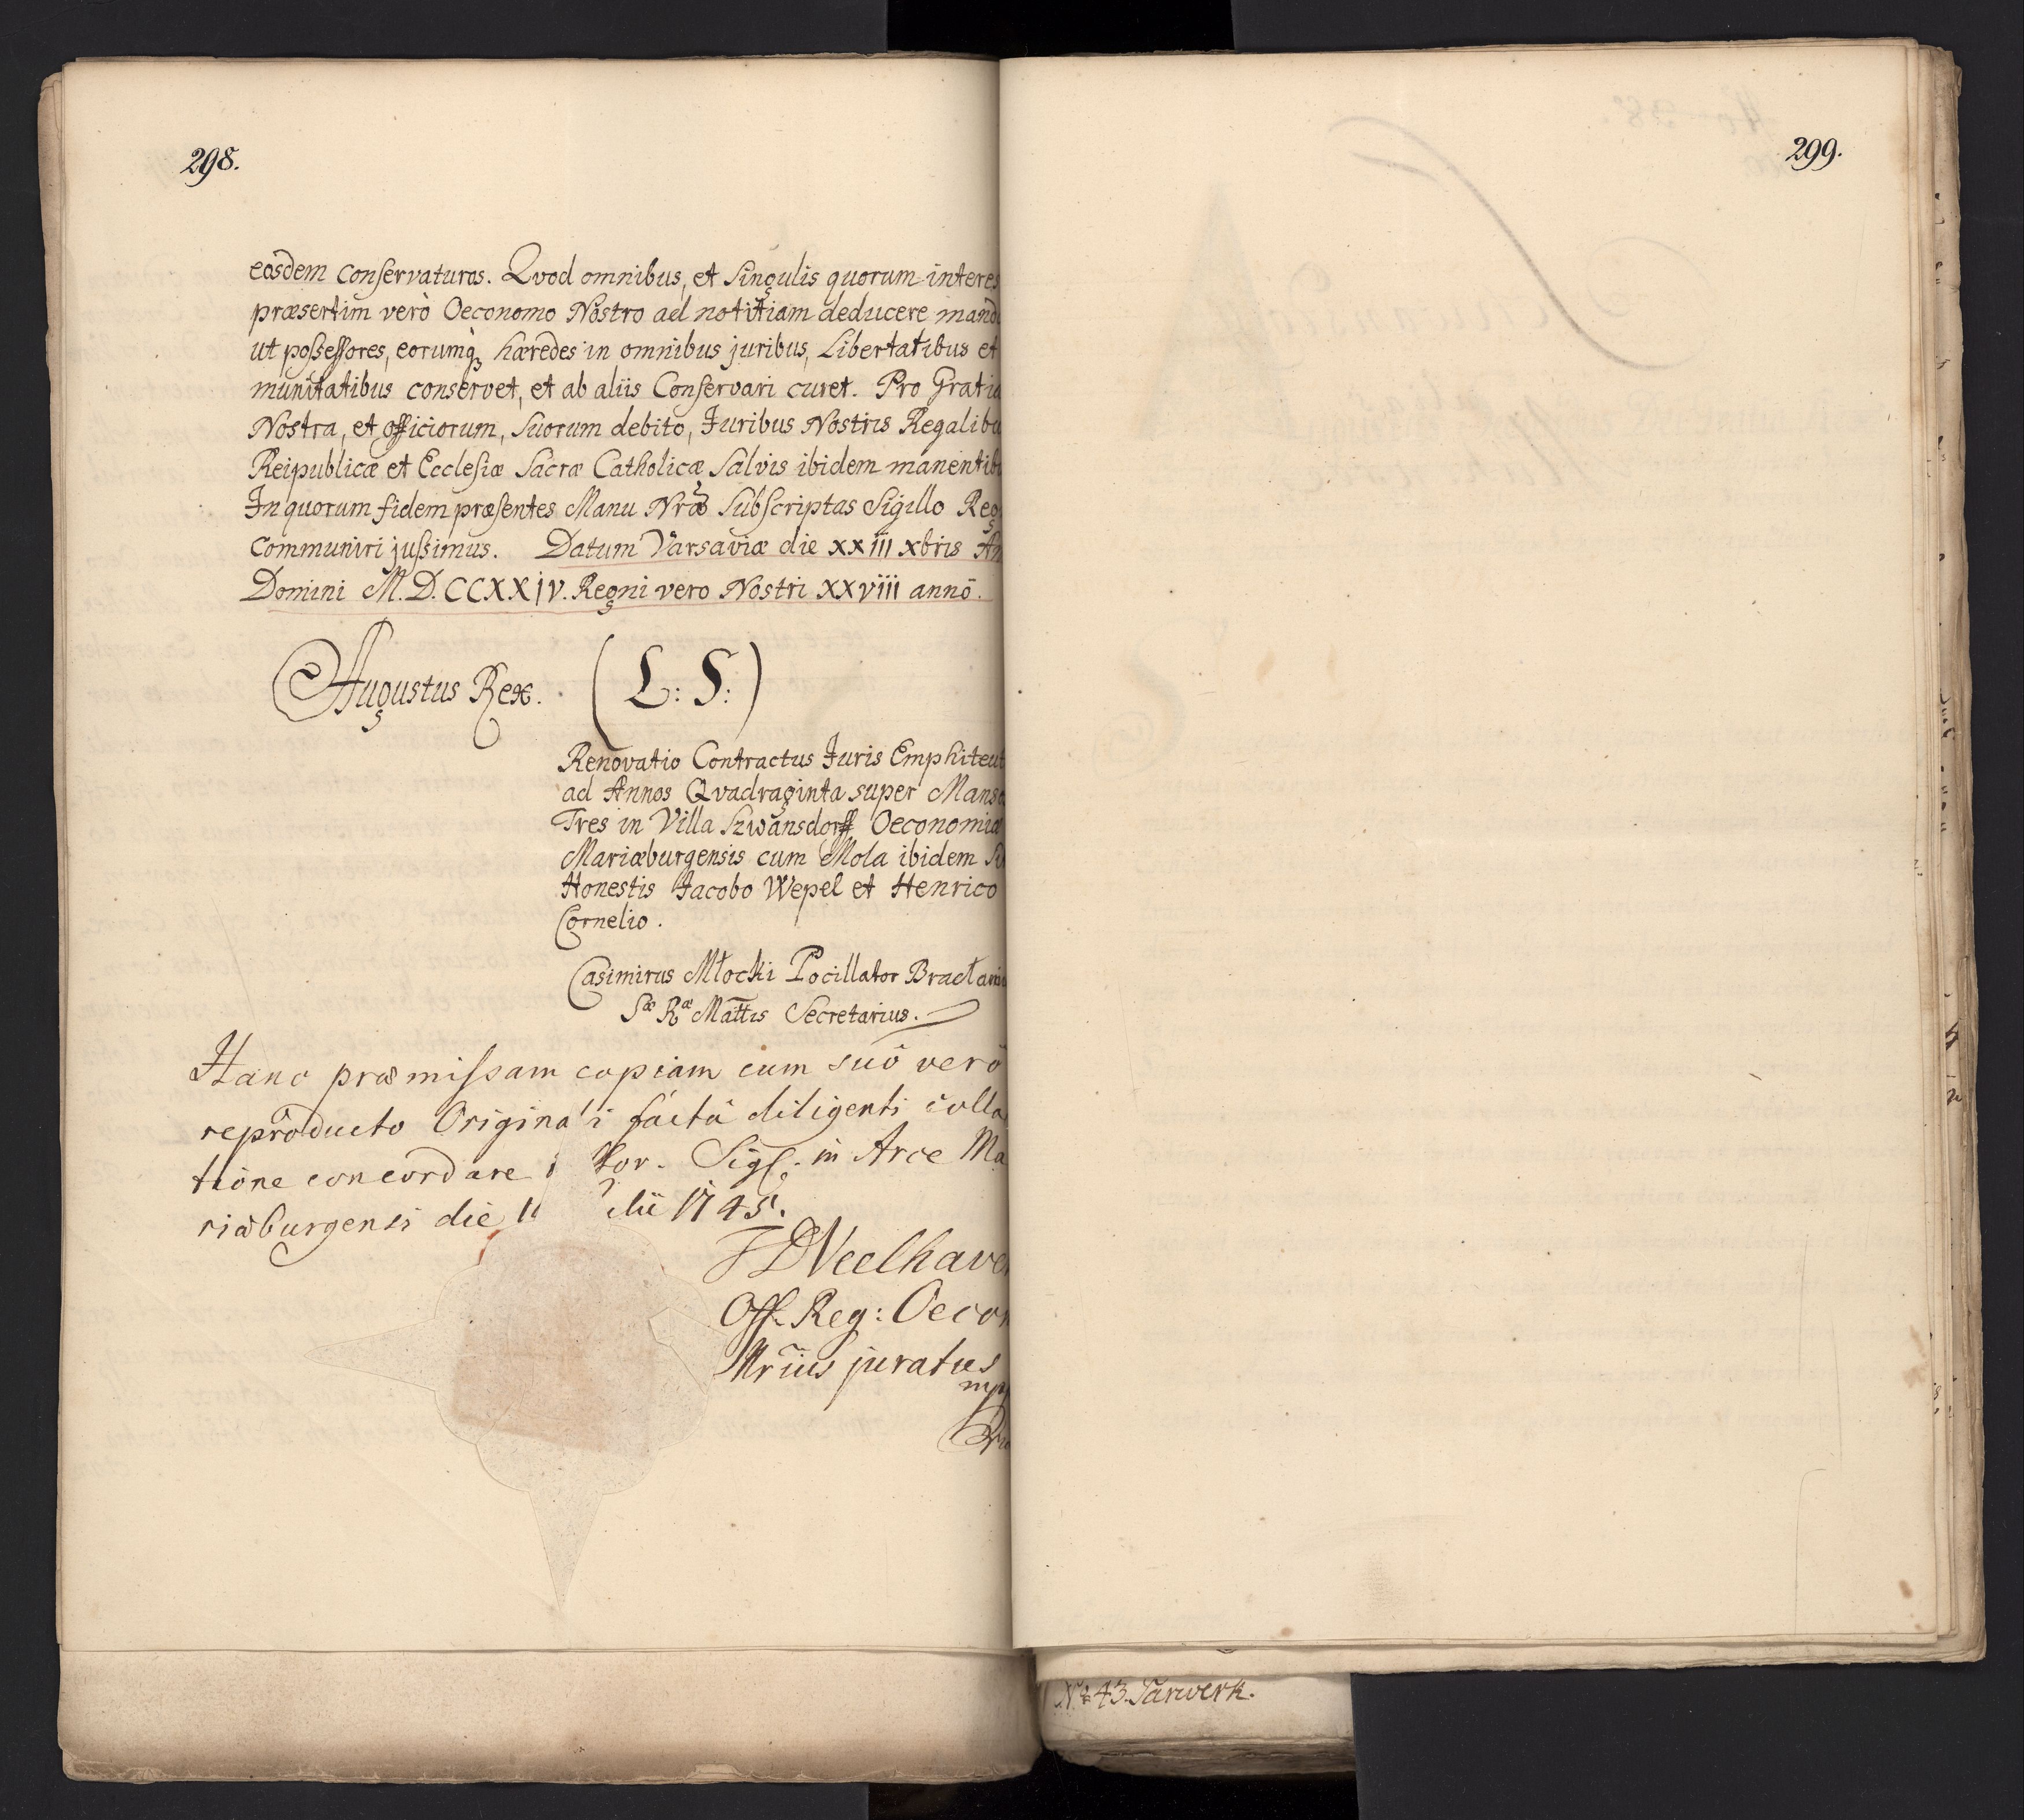 298.
eosdem conservaturos. Qvod omnibus, et singulis quorum interes
præsertim verò Oeconomo Nostro ad notitiam deducere mand
ut possessores, eorumq, hæredes in omnibus juribus, Libertatibus et
munitatibus conservet, et ab aliis Conservari curet. Pro Gratia
Nostra, et officiorum, suorum debito, Juribus Nostris Regalibu
Reipublicæ et Ecclesiæ Sacræ Catholicæ Salvis ibidem manentibu
In quorum fidem præsentes Manu Nrã Subscriptas Sigillo Reg
Communiri jussimus. Datum Varsaviæ die XXIII Xbris An
Domini M.D.CCXXIV. Regni vero Nostri XXVIII annō.
Augustus Rex. (L: S:)
Renovatio Contractus Juris Emphiteut
ad Annos Qvadraginta super Manso
Tres in Villa Szwansdorff Oeconomiæ
Mariæburgensis cum Mola ibidem
Honestis Jacobo Wepel et Henrico
Cornelio.
Casimirus Młocki Pocillator Braclavi
Sæ Ræ Mattis Secretarius.
Hanc præmissam copiam cum suô verô
reproducto Originali factâ diligenti colla
tione concordare Sigl: in Arce Ma
riæburgensi die 1745.
Off. Reg: Oecon
Mrius juratus
mp
299.
No 43. Tarwerk.